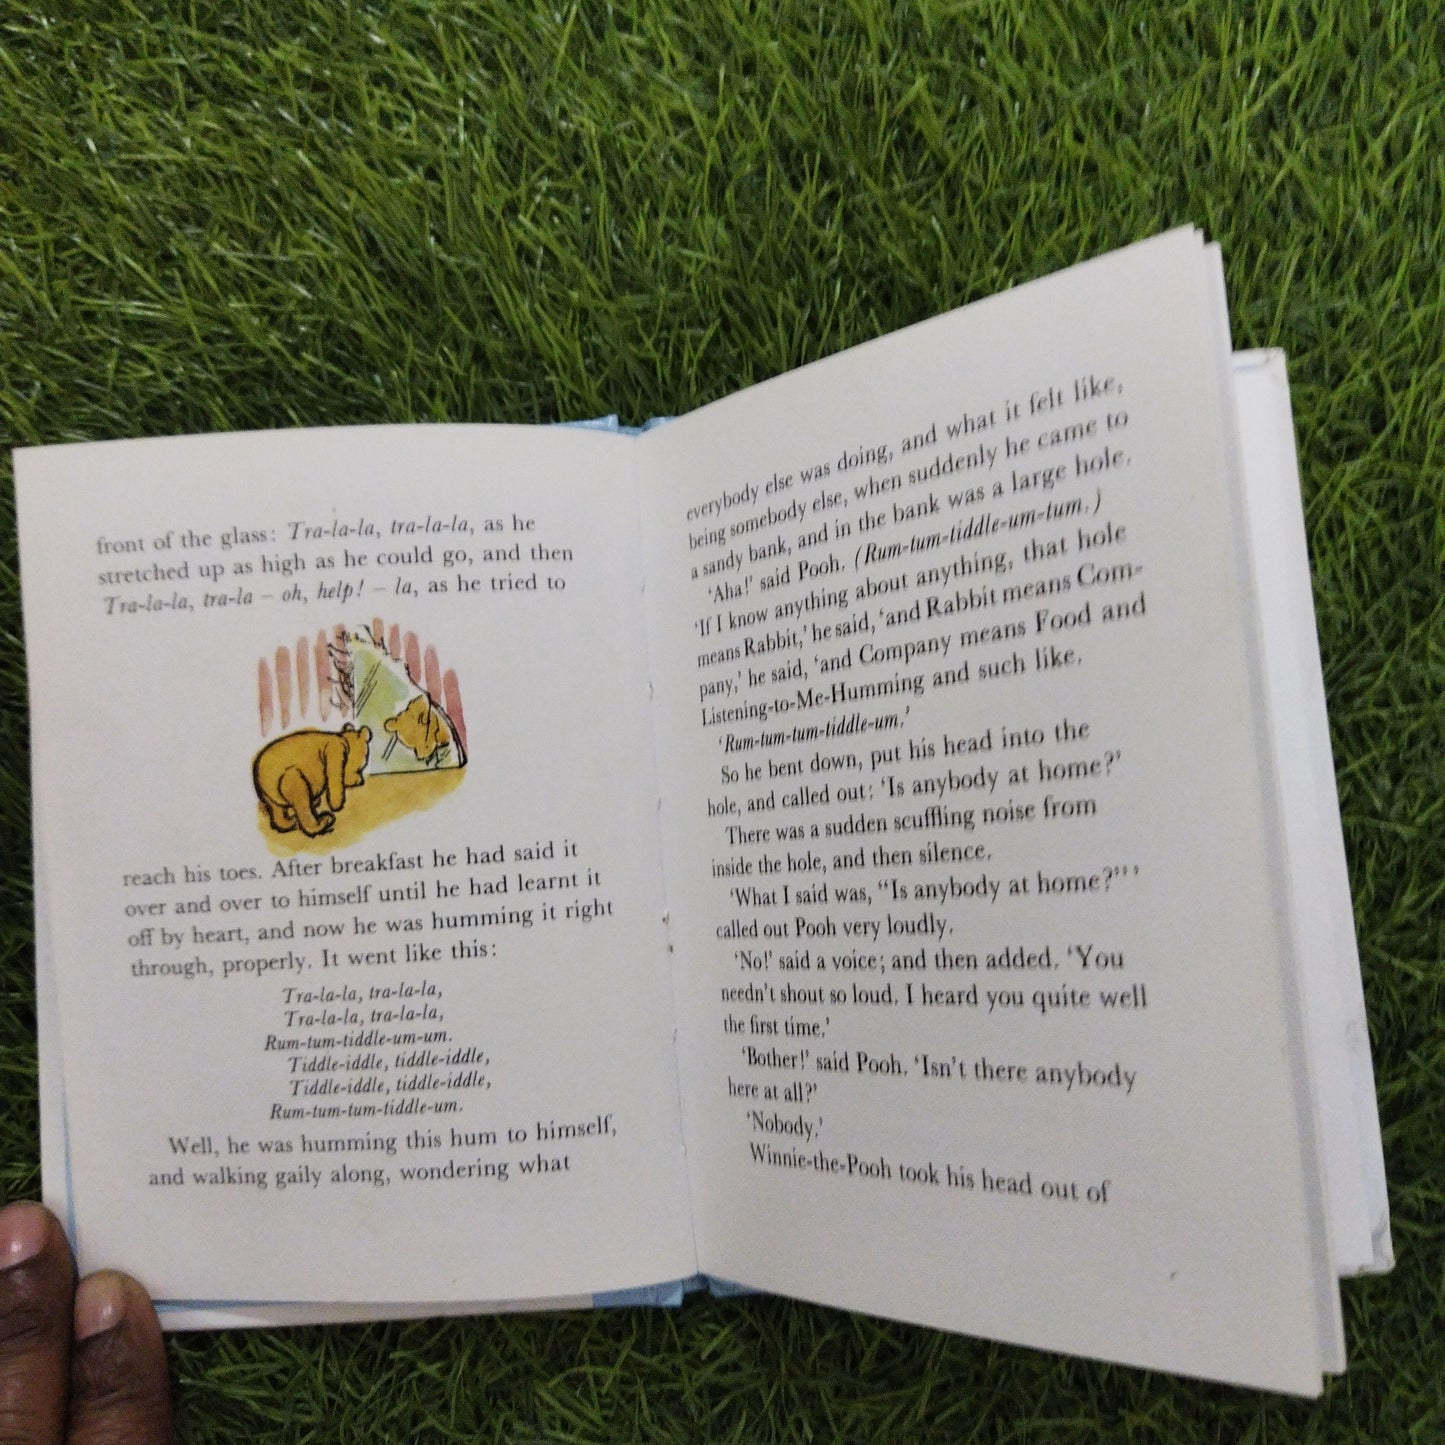 front of the glass: Tra-la-la, tra-la-la, as he
stretched up as high as he could go, and then
Tra-la-la, tra-la – oh, help! – la, as he tried to
reach his toes. After breakfast he had said it
over and over to himself until he had learnt it
off by heart, and now he was humming it right
through, properly. It went like this:
Tra-la-la, tra-la-la,
Tra-la-la, tra-la-la,
Rum-tum-tiddle-um-um.
Tiddle-iddle, tiddle-iddle,
Tiddle-iddle, tiddle-iddle,
Rum-tum-tum-tiddle-um.
Well, he was humming this hum to himself,
and walking gaily along, wondering what
everybody else was doing, and what it felt like,
being somebody else, when suddenly he came to
a sandy bank, and in the bank was a large hole.
‘Aha!’ said Pooh. (Rum-tum-tiddle-um-tum.)
‘If I know anything about anything, that hole
means Rabbit,’ he said, ‘and Rabbit means Com-
pany,’ he said, ‘and Company means Food and
Listening-to-Me-Humming and such like.
‘Rum-tum-tum-tiddle-um.’
So he bent down, put his head into the
hole, and called out: ‘Is anybody at home?’
There was a sudden scuffling noise from
inside the hole, and then silence.
‘What I said was, “Is anybody at home?”’
called out Pooh very loudly.
‘No!’ said a voice; and then added, ‘You
needn’t shout so loud. I heard you quite well
the first time.’
‘Bother!’ said Pooh. ‘Isn’t there anybody
here at all?’
‘Nobody.’
Winnie-the-Pooh took his head out of